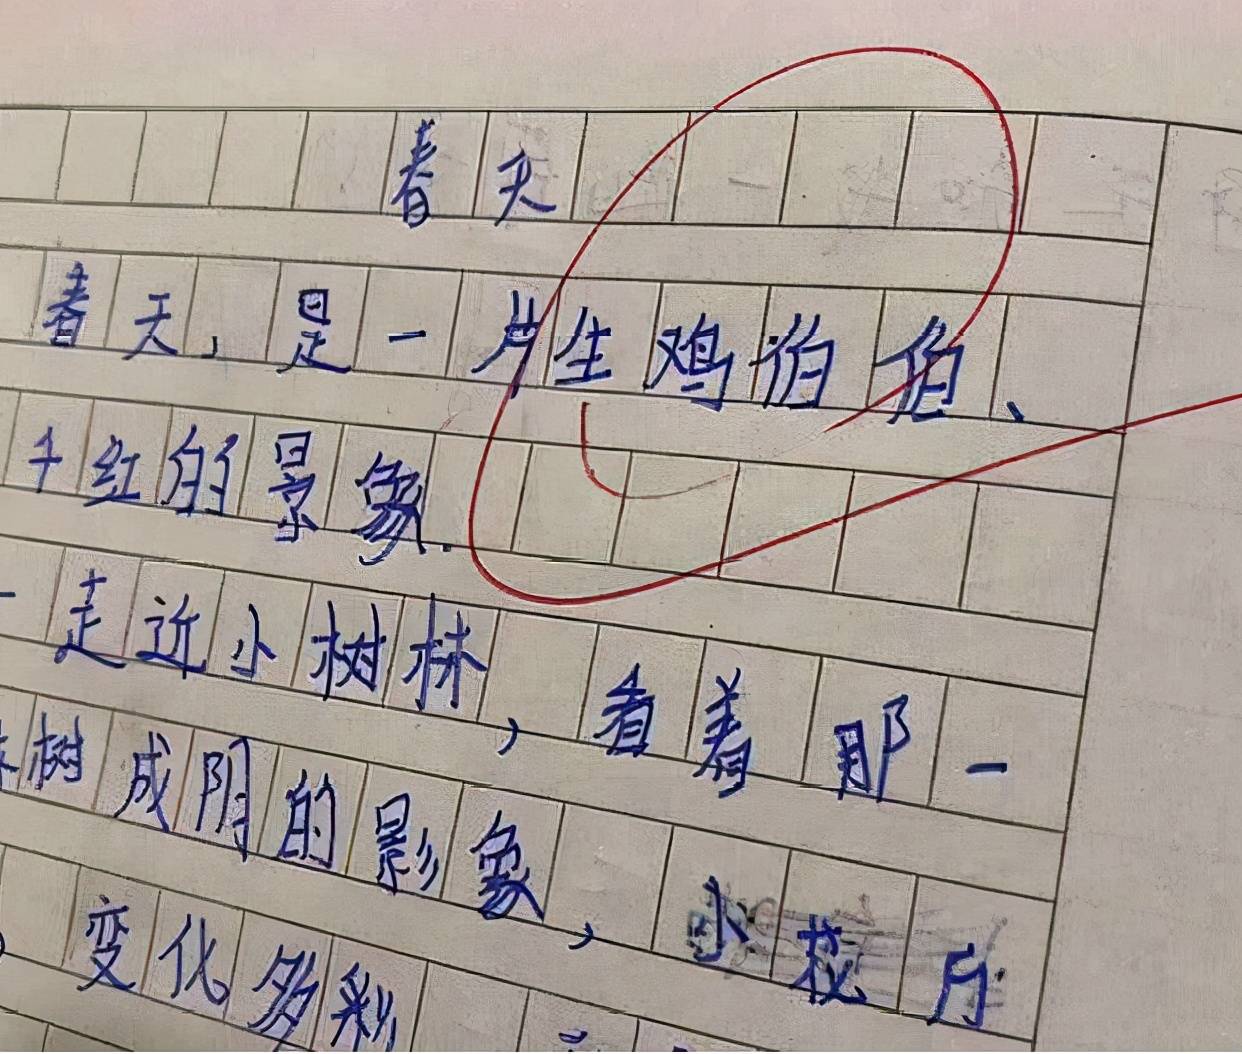 春天
春天，是一片生鸡伯伯、
千红的景象.
一走近小树林，看着那一
林树成阴的影象，小
变化多彩